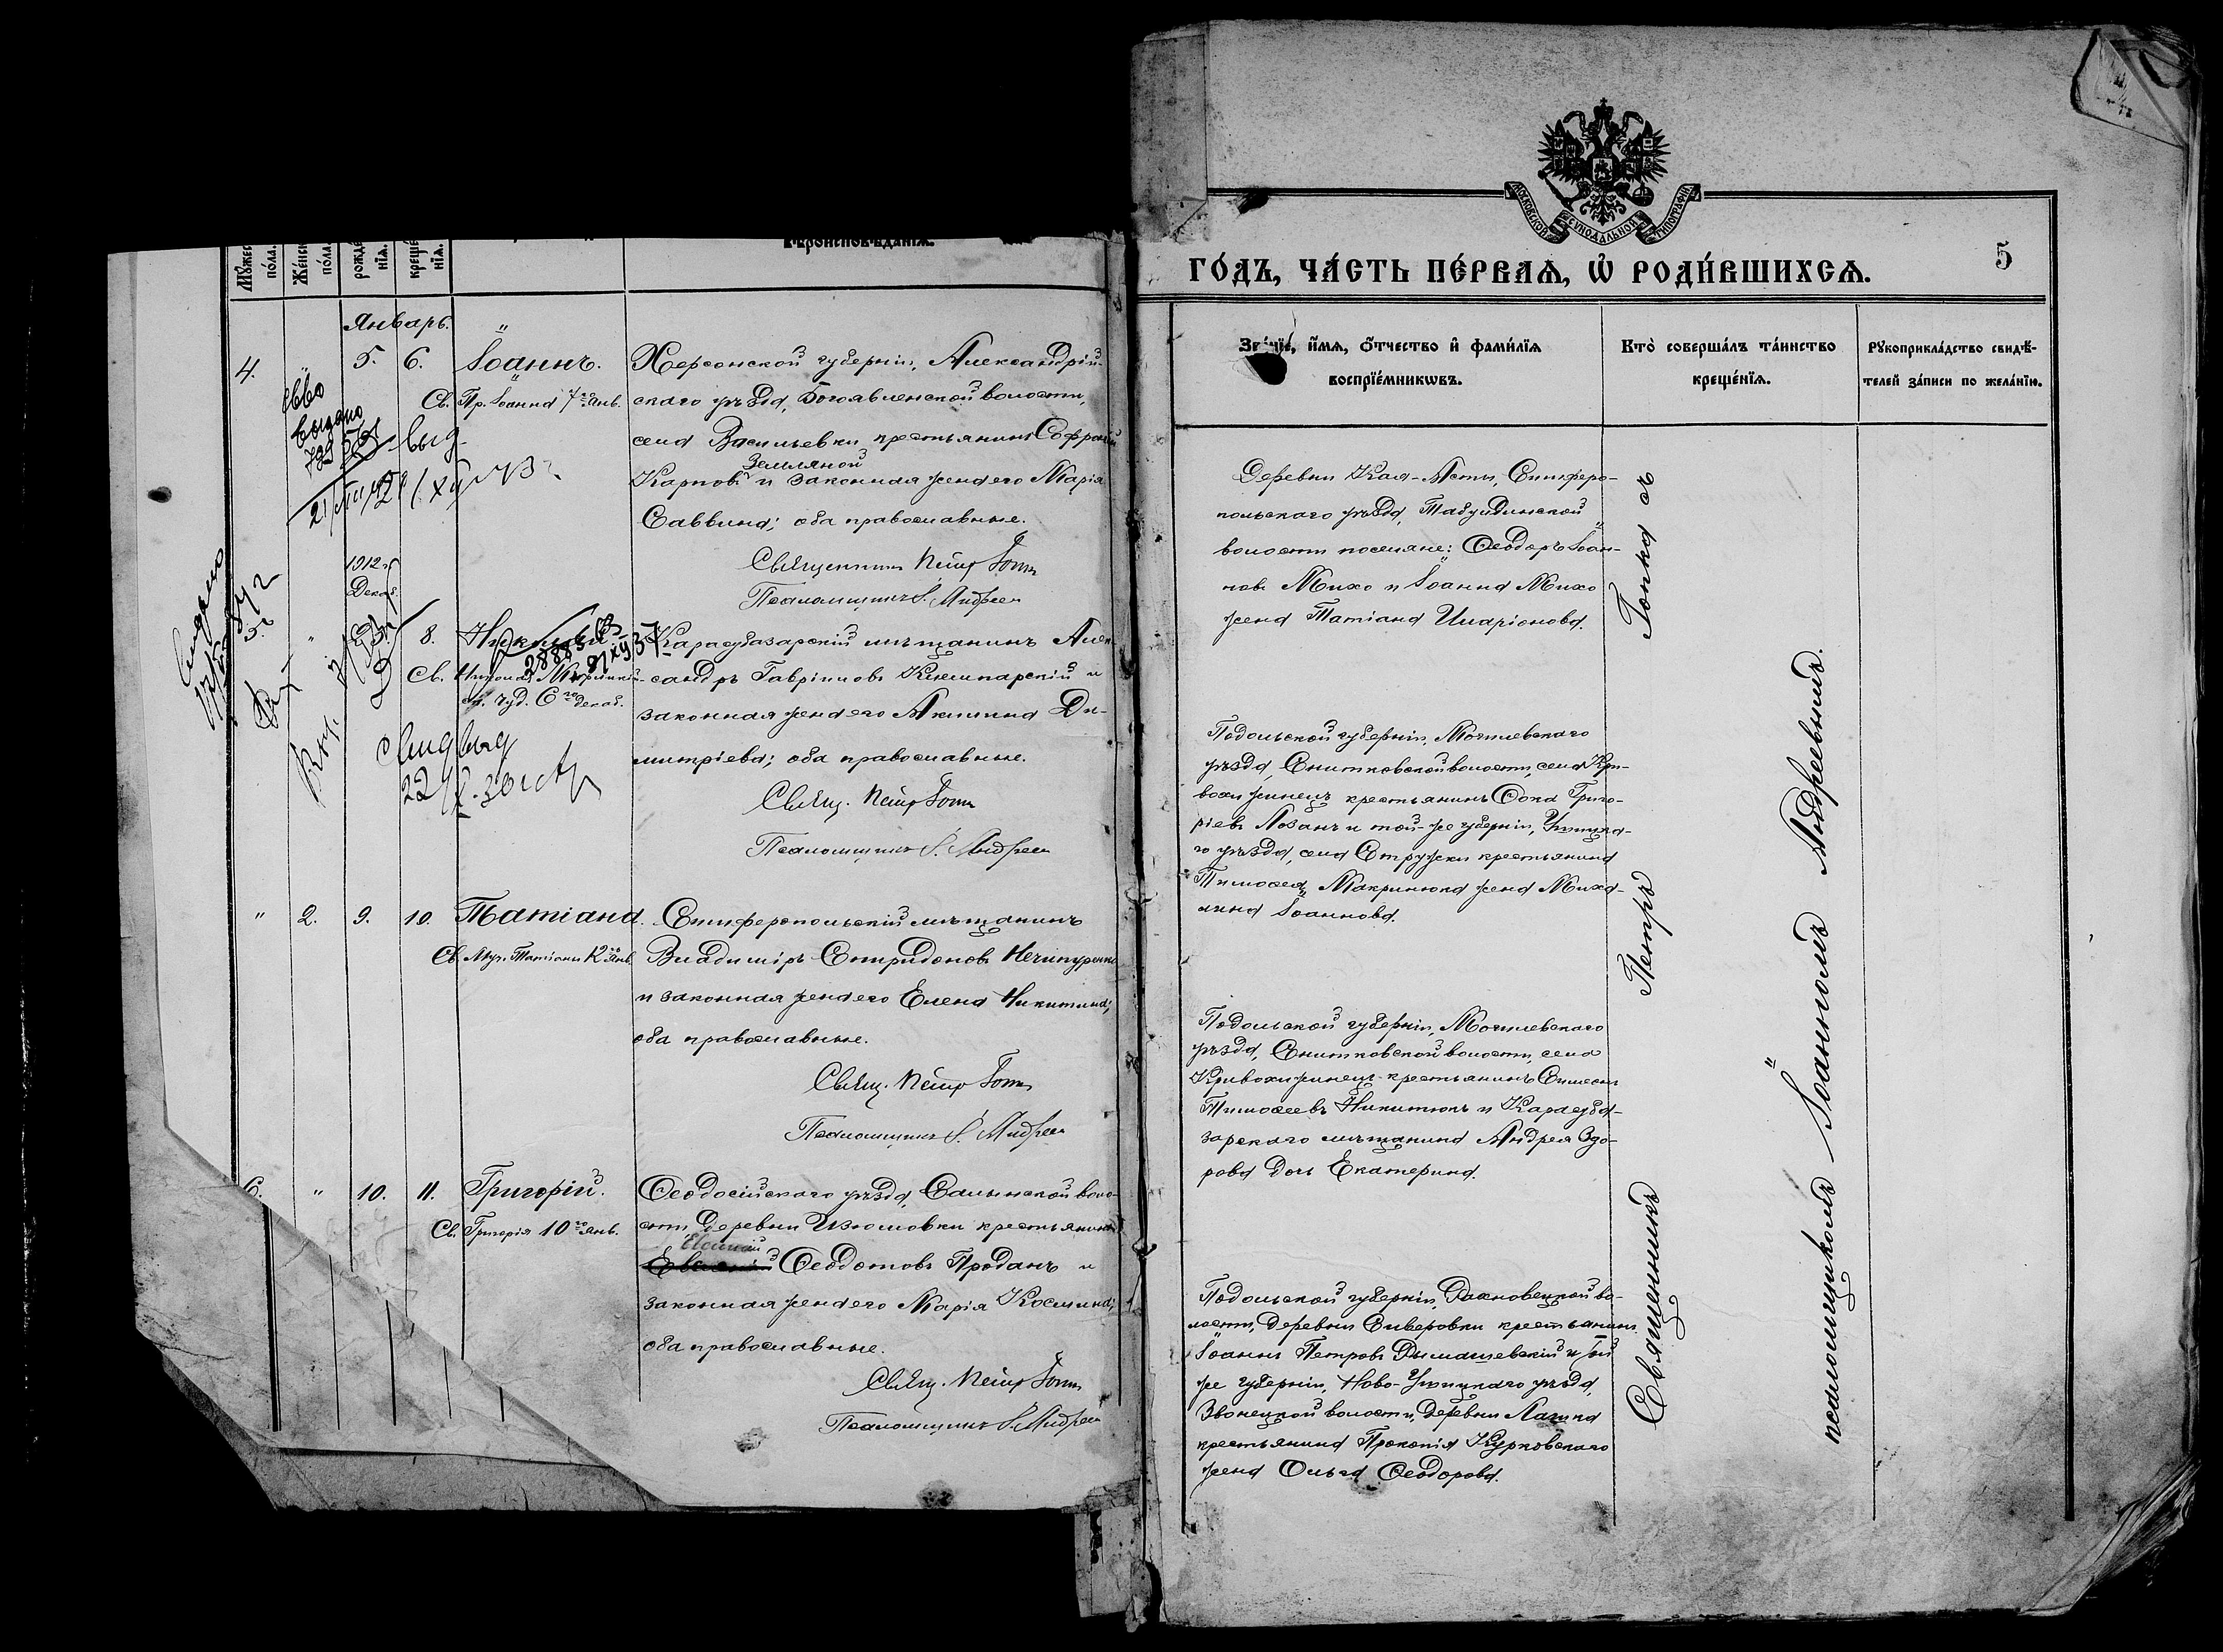 Мꙋжес
пола.
Женск
пола.
рожде
нїѧ.
креще
нїѧ.
вѣроисповѣданїѧ.
Январь.
4. " 5. 6. Іоаннъ.
Св. Пр. Іоанна 7го Янв.
Херсонской губерніи, Александрій-
скаго уѣзда, Богоявленской волости,
села Васильевки, крестьянинъ Софроній
Земляной
Карповъ и законная жена его Марія
Саввина; оба православные.
Священникъ Петръ Гопка
Псаломщикъ І. Андреев
выдано
выд
1912 г.
Декаб.
5. " 8. Николай
Св. Николая
чуд. 6го декаб.
28883
Карасубазарскій мѣщанинъ Алек-
сандръ Гавріиловъ и
законная жена его Акилина Ди-
митріева; оба православные.
Свящ. Петръ Гопка
Псаломщикъ І. Андреев
" 2. 9. 10. Татіана.
Св. Муч. Татіаны 12го Янв.
Симферопольскій мѣщанинъ
Владиміръ Спиридоновъ Нечипуренко
и законная жена его Елена Никитина;
оба православные.
Свящ. Петръ Гопка
Псаломщикъ І. Андреев
6. " 10. 11. Григорій.
Св. Григорія 10го Янв.
Ѳеодосійскаго уѣзда, Салынской воло-
сти, деревни Изюмовки крестьянинъ
Ѳеодотовъ Проданъ и
законная жена его Марія Космина;
оба православные.
Свящ. Петръ Гопка
Псаломщикъ І. Андреев
МОСКОВСКОЙ СѴНОДАЛЬНОЙ ТИПОГРАФІИ
5
ГО́ДЪ, ЧА́СТЬ ПЕ́РВАѦ, Ѡ҆ РОДИ́ВШИХСѦ.
Зва́нїе, и҆́мѧ, ѻ҆́тчество и҆ фами́лїѧ
воспрїе́мникѡвъ.
Кто̀ соверша́лъ та́инство
креще́нїѧ.
Рꙋкоприкла́дство свидѣ́-
телей за́писи по жела́нїю.
Деревни Кая-Асты, Симферо-
польскаго уѣзда, Табулдинской
волости поселяне: Ѳеодоръ Іоан-
новъ Михо и Іоанна Михо
жена Татіана Иларіонова.
Подольской губерніи, Могилевскаго
уѣзда, Снитковской волости, села Кри-
вохижинецъ крестьянинъ Ѳома Григо-
ріевъ Лозанъ и той-же губерніи, Ушицка-
го уѣзда, села Стружки крестьянина
Тимоѳея Макринюка жена Миха-
лина Іоаннова.
Подольской губерніи, Могилевскаго
уѣзда, Снитковской волости, села
Кривохижинецъ крестьянинъ Симеонъ
Тимоѳеевъ Никитюкъ и Карасуба-
зарскаго мѣщанина Андрея Здо-
рова дочь Екатерина.
Подольской губерніи, Дахновецкой во-
лости, деревни Сиверовки крестьянинъ
Іоаннъ Петровъ Дымашевскій и той
же губерніи, Ново-Ушицкаго уѣзда,
Звонецкой волости, деревни
крестьянина Прокопія Курковскаго
жена Ольга Ѳеодорова.
Священникъ Петръ Гопка съ
псаломщикомъ Іоанномъ Андреевымъ.